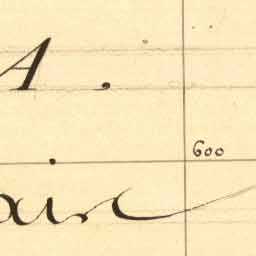 A.
600
air